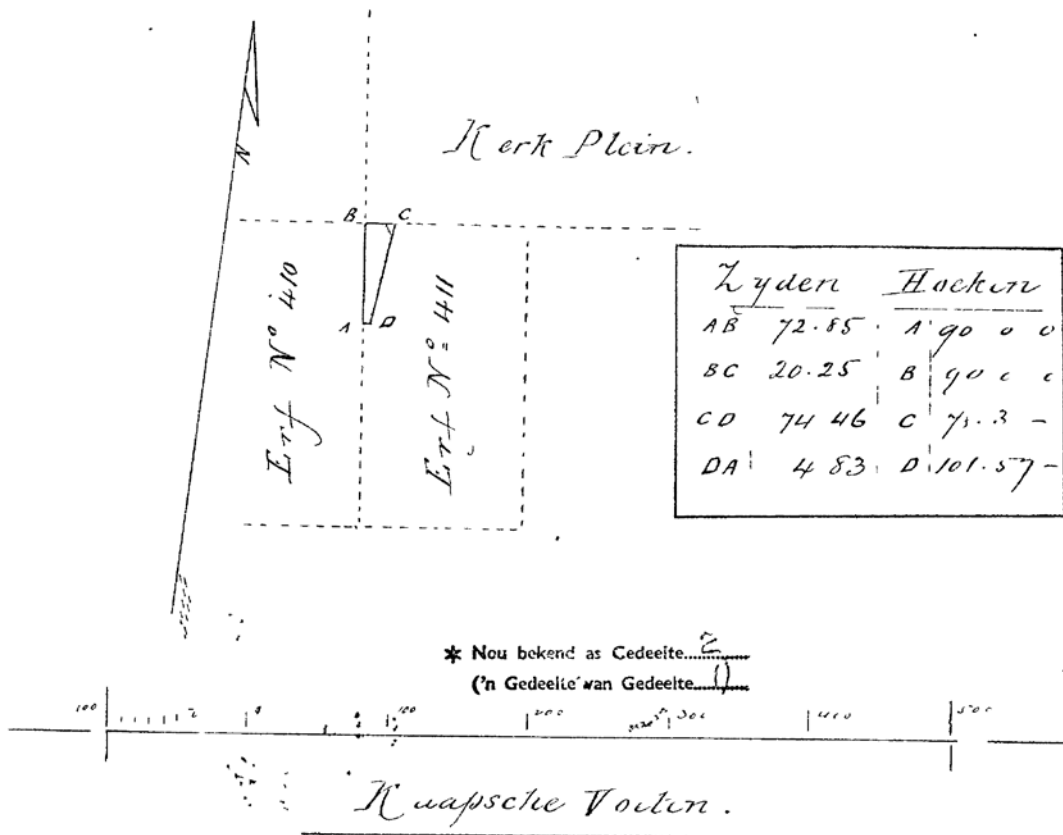 N
Kerk Plein.
B C
A D
Erf Nº 410
Erf Nº 411
Zyden Hoeken
AB 72.85 A 90 0 0
BC 20.25 B 90 0 0
CD 74 46 C .3 -
DA 4 83 D 101.57 -
* Nou bekend as Gedeelte........
('n Gedeelte van Gedeelte........
100 0 100 200 300 400 500
Kaapsche Voeten.